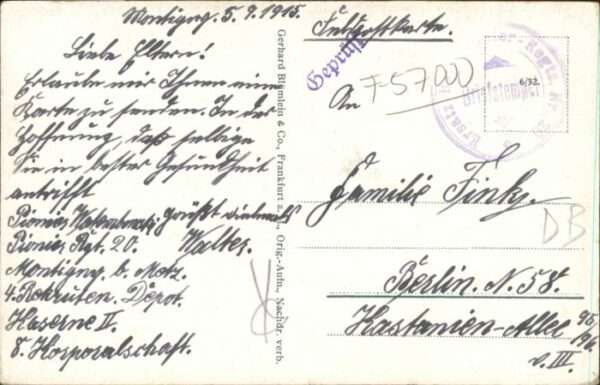 Montigny. 5.9.1915.
Liebe Eltern!
Erlaube mir Ihnen eine
Karte zu senden. In der
Hoffnung, daß selbige
Sie in bester Gesundheit
antrifft
Pionier grüßt vielmals
Pionier Rgt. 20. Walter.
Montigny b. Metz.
4. Rekruten Depot.
Kaserne II.
8. Korporalschaft.
Gerhard Blümlein & Co., Frankfurt a. M., Orig.-Aufn., Nachdr. verb.
Feldpostkarte.
Geprüft
An
7-57000
6/32.
Briefstempel
Familie Finks.
DB
Berlin. N. 58.
Kastanien-Allee 95/96.
v. III.